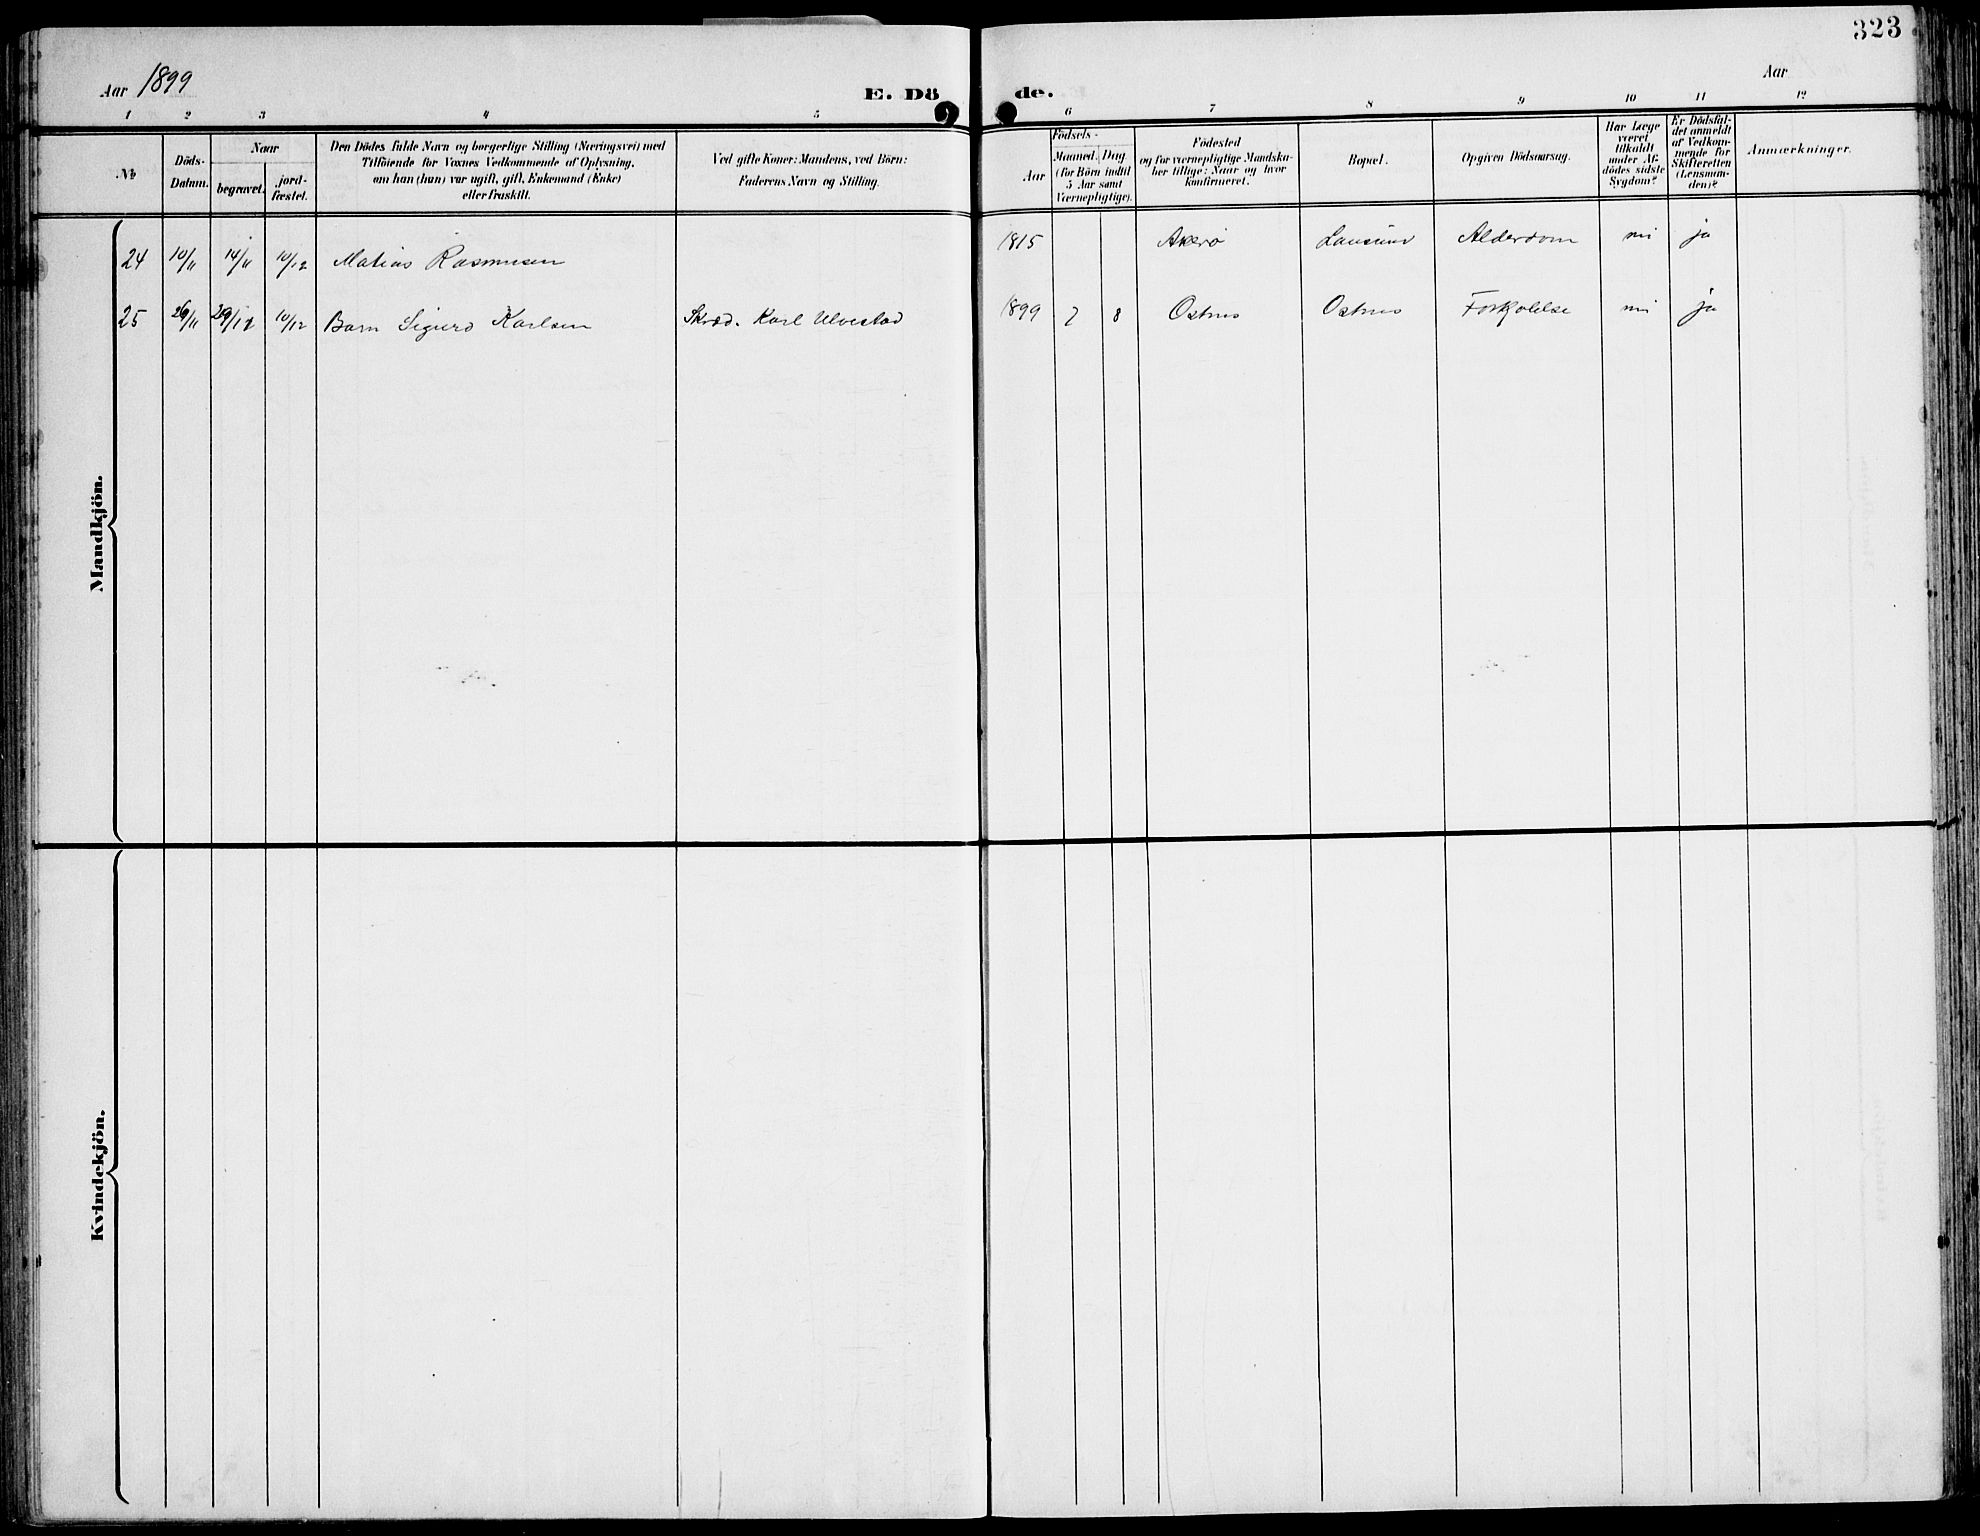 323
Aar 1899
E. Dö de.
Aar
1 2 3 4 5 6 7 8 9 10 11 12
№
Döds-
Datum.
Naar
begravet.
jord-
fæstet.
Den Dödes fulde Navn og borgerlige Stilling (Næringsvei) med
Tilföiende for Voxnes Vedkommende af Oplysning,
om han (hun) var ugift, gift, Enkemand (Enke)
eller fraskilt.
Ved gifte Koner: Mandens, ved Börn:
Faderens Navn og Stilling.
Födsels-
Aar
Maaned. Dag
(for Börn indtil
5 Aar samt
Værnepligtige).
Födested
og for værnepligtige Mandska-
ber tillige: Naar og hvor
konfirmeret.
Bopæl.
Opgiven Dödsaarsag.
Har Læge
været
tilkaldt
under Af-
dödes sidste
Sygdom?
Er Dödsfal-
det anmeldt
af Vedkom-
mende for
Skifteretten
(Lensman-
den)?
Anmærkninger.
Mandkjön.
24 10/11 14/11 10/12 Matias Rasmusen 1815 Akerø Alderdom nei ja
25 26/11 29/12 10/12 Barn Sigurd Karlsen Skræd. Karl Ulvestad 1899 7 8 Ostnes Ostnes Forkjølelse nei ja
Kvindekjön.